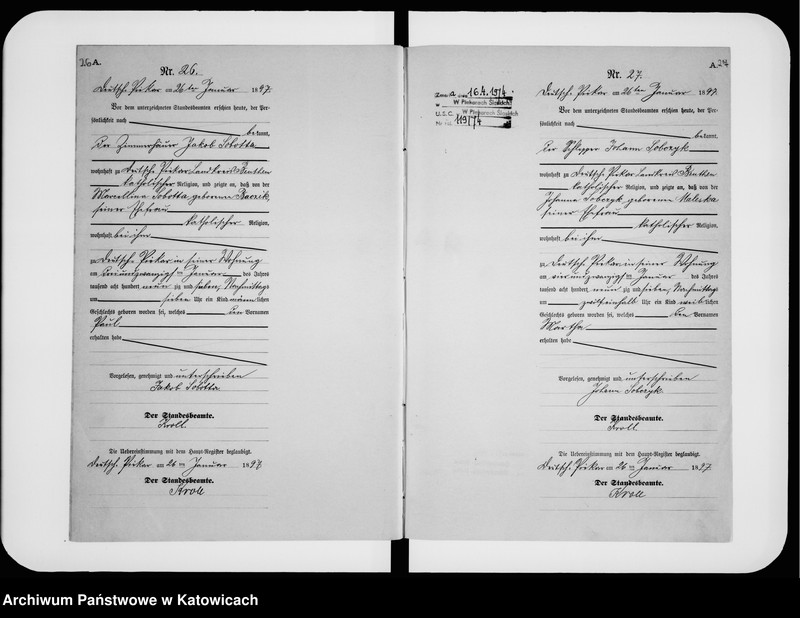 26 A.
Nr. 26.
Deutsch Piekar am 26ten Januar 1897.
Vor dem unterzeichneten Standesbeamten erschien heute, der Per-
sönlichkeit nach
bekannt,
der Zimmerhäuer Jakob Sobotta
wohnhaft zu Deutsch Piekar Landkreis Beuthen
katholischer Religion, und zeigte an, daß von der
Marcellina Sobotta geborenen
seiner Ehefrau
katholischer Religion,
wohnhaft bei ihm
zu Deutsch Piekar in seiner Wohnung
am dreiundzwanzigsten Januar des Jahres
tausend acht hundert neun zig und sieben, Nachmittags
um sieben Uhr ein Kind männlichen
Geschlechts geboren worden sei, welches den Vornamen
Paul
erhalten habe
Vorgelesen, genehmigt und unterschrieben
Jakob Sobotta
Der Standesbeamte.
Kroll
Die Uebereinstimmung mit dem Haupt-Register beglaubigt.
Deutsch Piekar am 26ten Januar 1897.
Der Standesbeamte.
Kroll
A. 27
Nr. 27.
16.4.1974
w Piekarach Śląskich
U.S.C. w Piekarach Śląskich
Deutsch Piekar am 26ten Januar 1897.
Vor dem unterzeichneten Standesbeamten erschien heute, der Per-
sönlichkeit nach
bekannt,
der Schlepper Johann Sobczyk
wohnhaft zu Deutsch Piekar Landkreis Beuthen
katholischer Religion, und zeigte an, daß von der
Johanna Sobczyk geborenen Maleska
seiner Ehefrau
katholischer Religion,
wohnhaft bei ihm
zu Deutsch Piekar in seiner Wohnung
am vierundzwanzigsten Januar des Jahres
tausend acht hundert neun zig und sieben, Nachmittags
um zwölfeinhalb Uhr ein Kind weiblichen
Geschlechts geboren worden sei, welches den Vornamen
Martha
erhalten habe
Vorgelesen, genehmigt und unterschrieben
Johann Sobczyk
Der Standesbeamte.
Kroll
Die Uebereinstimmung mit dem Haupt-Register beglaubigt.
Deutsch Piekar am 26ten Januar 1897.
Der Standesbeamte.
Kroll
Archiwum Państwowe w Katowicach